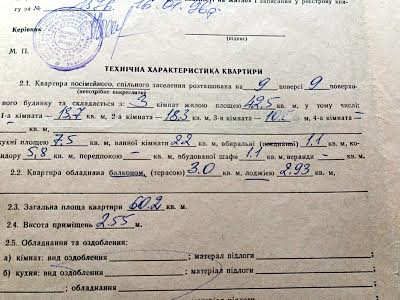 житлом і записаний у реєстрову кни-
гу за № 16.04.96р.
Керівник
(підпис)
М. П.
ТЕХНІЧНА ХАРАКТЕРИСТИКА КВАРТИРИ
2.1. Квартира посімейного, спільного заселення розташована на 9 поверсі 9 поверхо-
(непотрібне викреслити)
вого будинку та складається з 3 кімнат жилою площею 42,5 кв. м, у тому числі:
1-а кімната — 13,7 кв. м, 2-а кімната — 18,3 кв. м, 3-я кімната — кв. м, 4-а кімната —
кв. м,
кухні площею 7,5 кв. м, ванної кімнати 2.2 кв. м, вбиральні 1,1 кв. м, ко-
ридору 5,8 кв. м, передпокою — кв. м, вбудованої шафи 1.1 кв. м, веранди — кв. м.
2.2. Квартира обладнана балконом, (терасою) 3.0 кв. м, лоджією 2.93 кв. м.
2.3. Загальна площа квартири 60.2 кв. м.
2.4. Висота приміщень 2.55 м.
2.5. Обладнання та оздоблення:
а) кімнат: вид оздоблення ; матеріал підлоги ;
б) кухня: вид оздоблення ; матеріал підлоги
; обладнання ;
матеріал підлоги